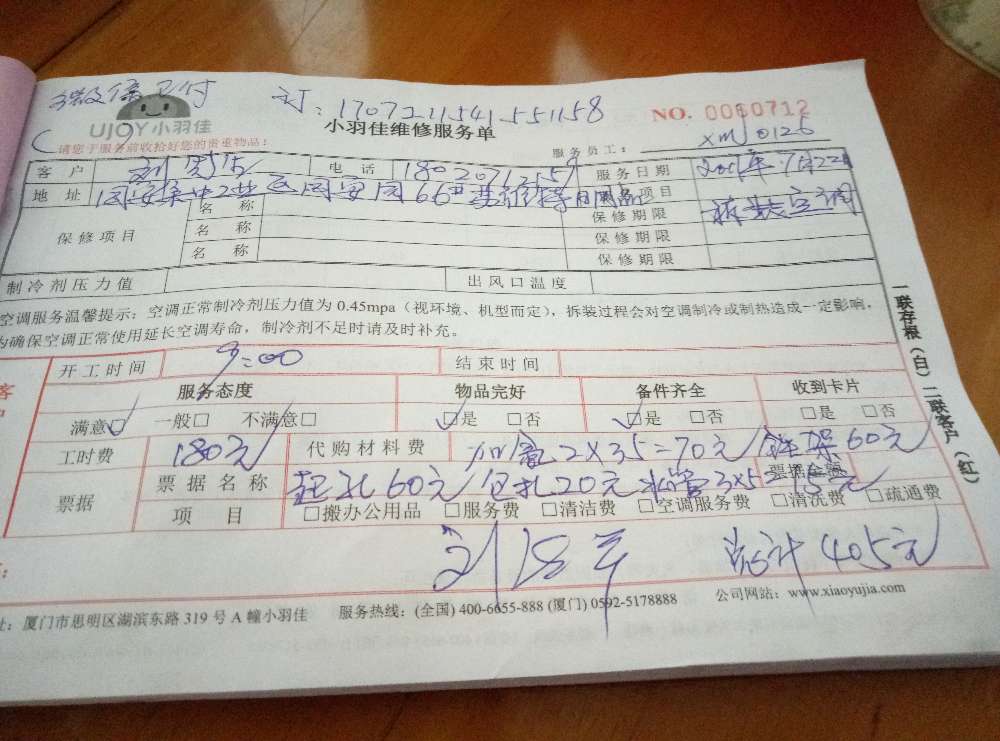 微信已付 订:17072211541551158 NO. 0060712
UJOY小羽佳 小羽佳维修服务单 xmj0126
请您于服务前收拾好您的贵重物品: 服务员工:
客户 电话 服务日期
地址 项目 拆装空调
保修项目 名称 保修期限
名称 保修期限
名称 保修期限
制冷剂压力值 出风口温度
空调服务温馨提示:空调正常制冷剂压力值为 0.45mpa(视环境、机型而定),拆装过程会对空调制冷或制热造成一定影响,
为确保空调正常使用延长空调寿命,制冷剂不足时请及时补充。
开工时间 9:00 结束时间
服务态度 物品完好 备件齐全 收到卡片
满意□ 一般□ 不满意□ □是 □否 □是 □否 □是 □否
工时费 180元 代购材料费 加氟2×35=70元/ 60元
票据 票据名称 60元/包扎20元 水管3×5=15元 票据金额
项目 □搬办公用品 □服务费 □清洁费 □空调服务费 □清洗费 □疏通费
总计405元
址:厦门市思明区湖滨东路 319 号 A 幢小羽佳 服务热线:(全国) 400-6655-888 (厦门) 0592-5178888 公司网站:www.xiaoyujia.com
一联存根(白)二联客户(红)